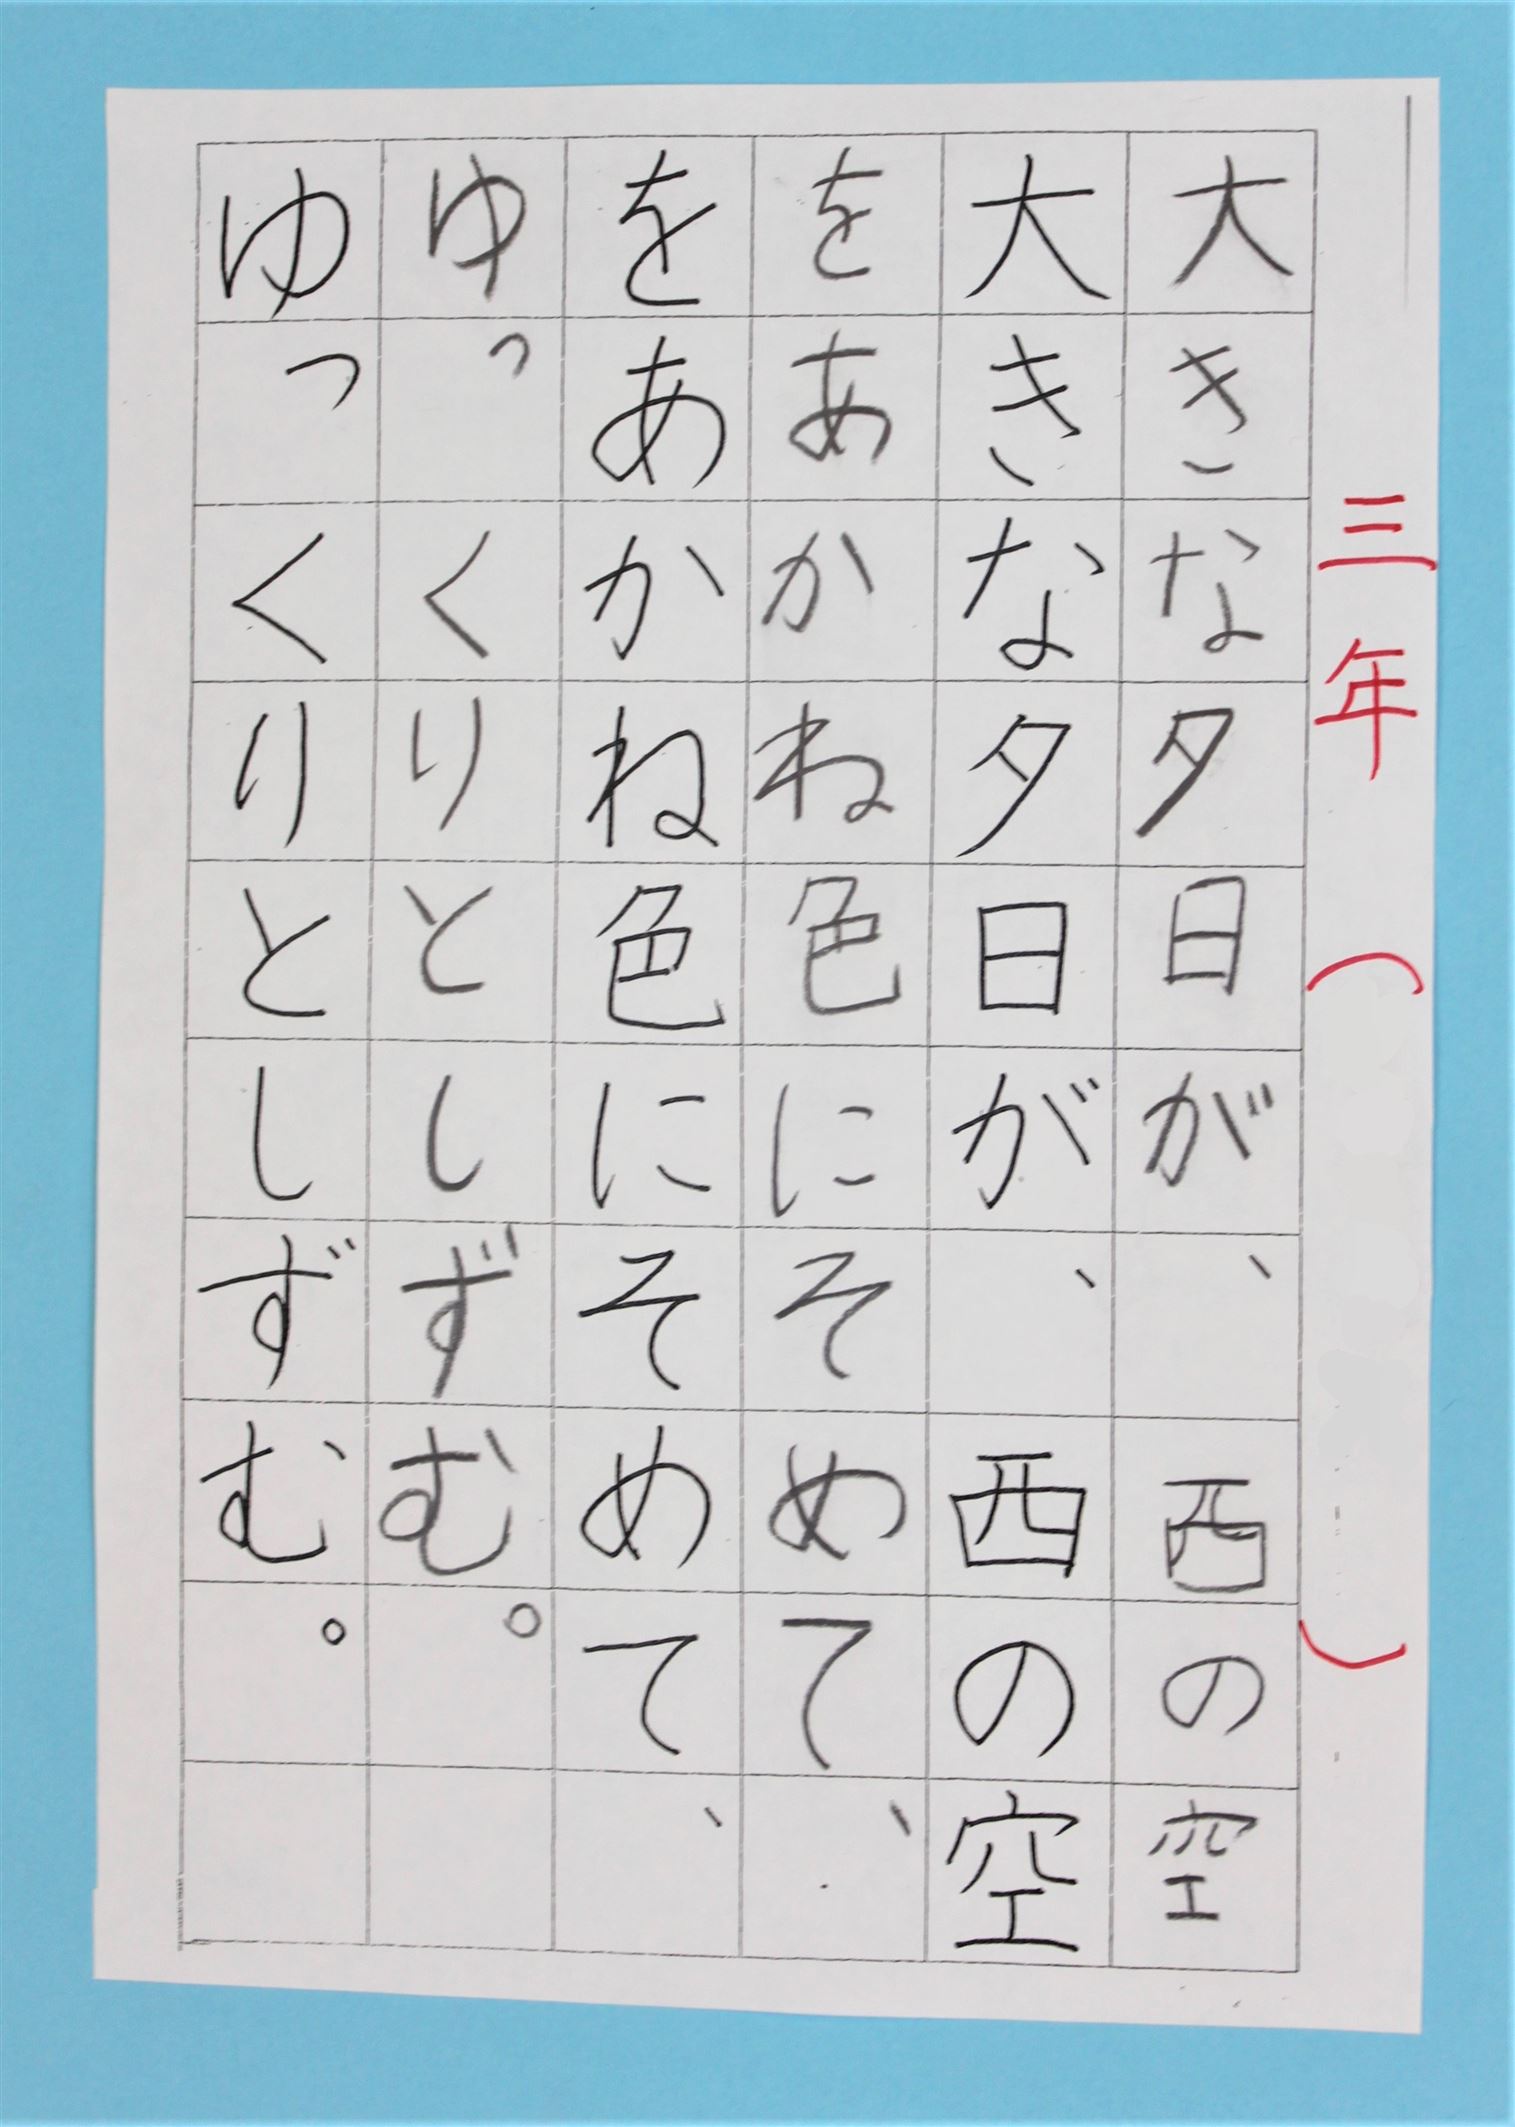 三年（　　　）
大きな夕日が、西の空
大きな夕日が、西の空
をあかね色にそめて、
をあかね色にそめて、
ゆっくりとしずむ。
ゆっくりとしずむ。